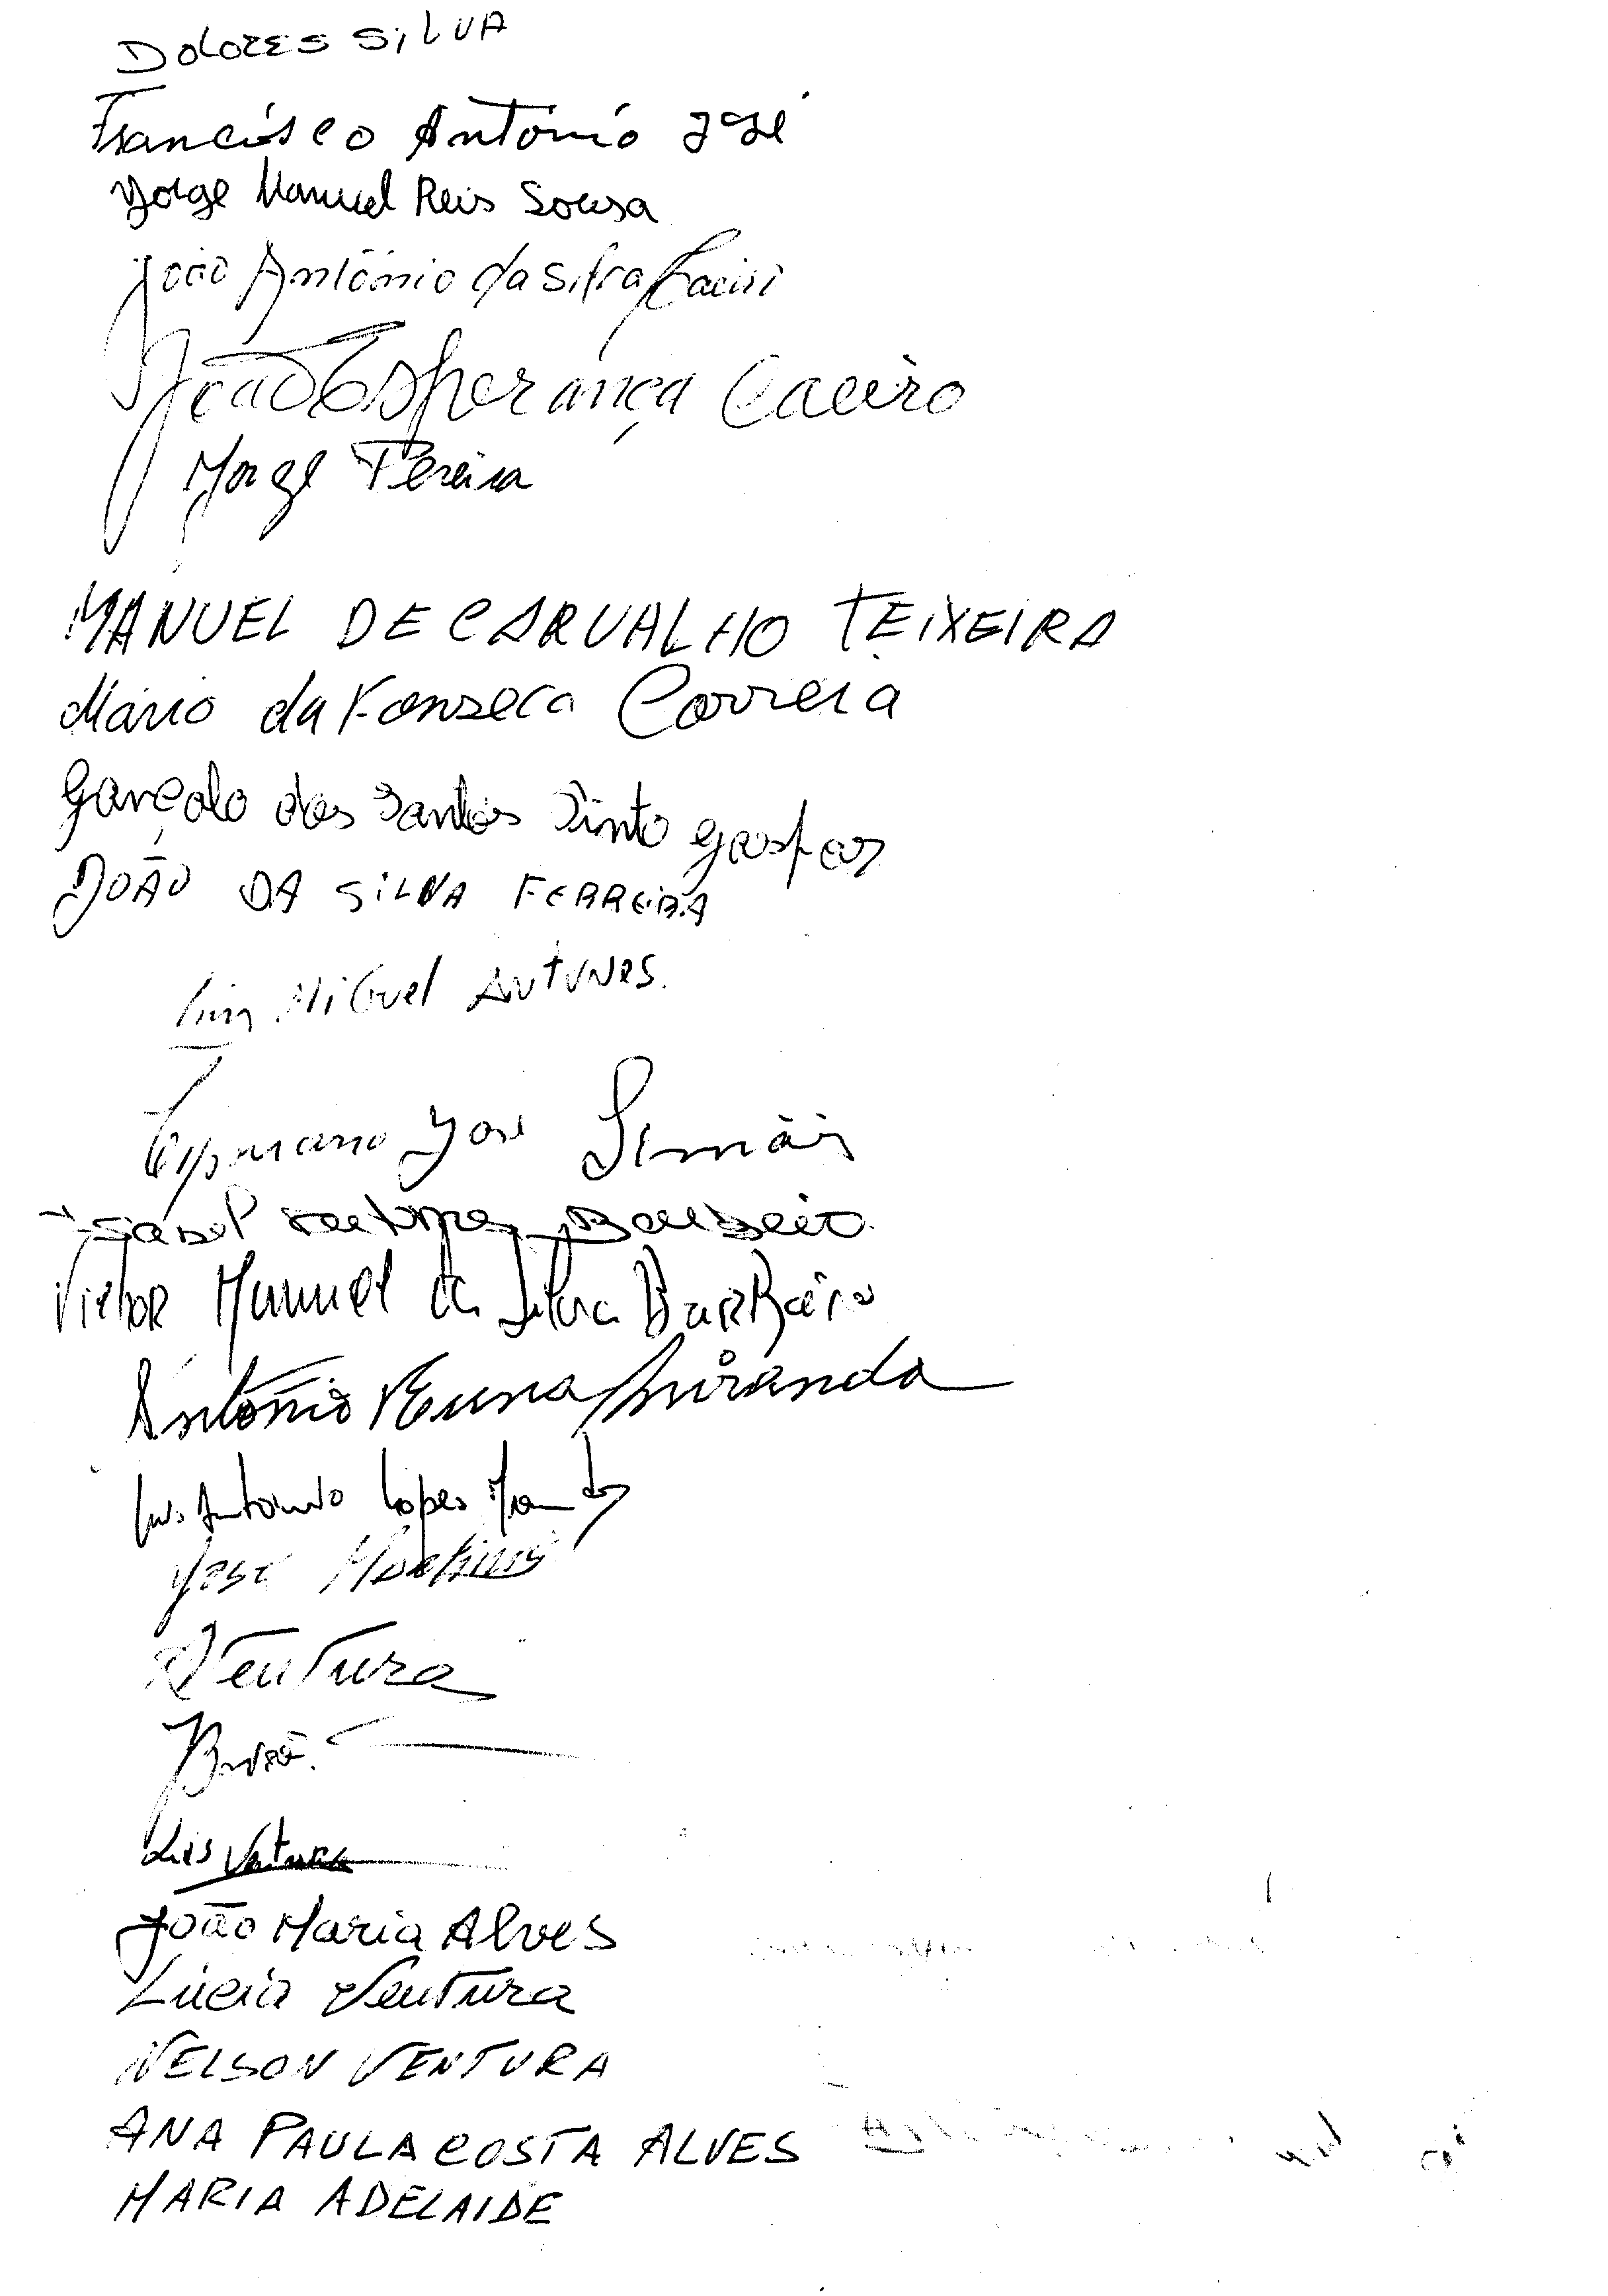 DOLORES SILVA
Francisco António José
Jorge Manuel Reis Sousa
João António da Silva
João Esperança Caeiro
Jorge Pereira
MANUEL DE CARVALHO TEIXEIRA
Mário da Fonseca Correia
dos Santos Pinto Gaspar
JOÃO DA SILVA FERREIRA
Luis Miguel Antunes.
José Simões
Isabel Antunes Barbeiro
Victor Manuel da Silva Barbeiro
António Miranda
Luis António Lopes
José Martins
Ventura
Luis Ventura
João Maria Alves
Lúcia Ventura
NELSON VENTURA
ANA PAULA COSTA ALVES
MARIA ADELAIDE